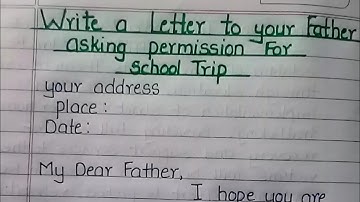 Write a Letter to your Father
asking permission For
School Trip
your address
place :
Date :
My Dear Father,
I hope you are